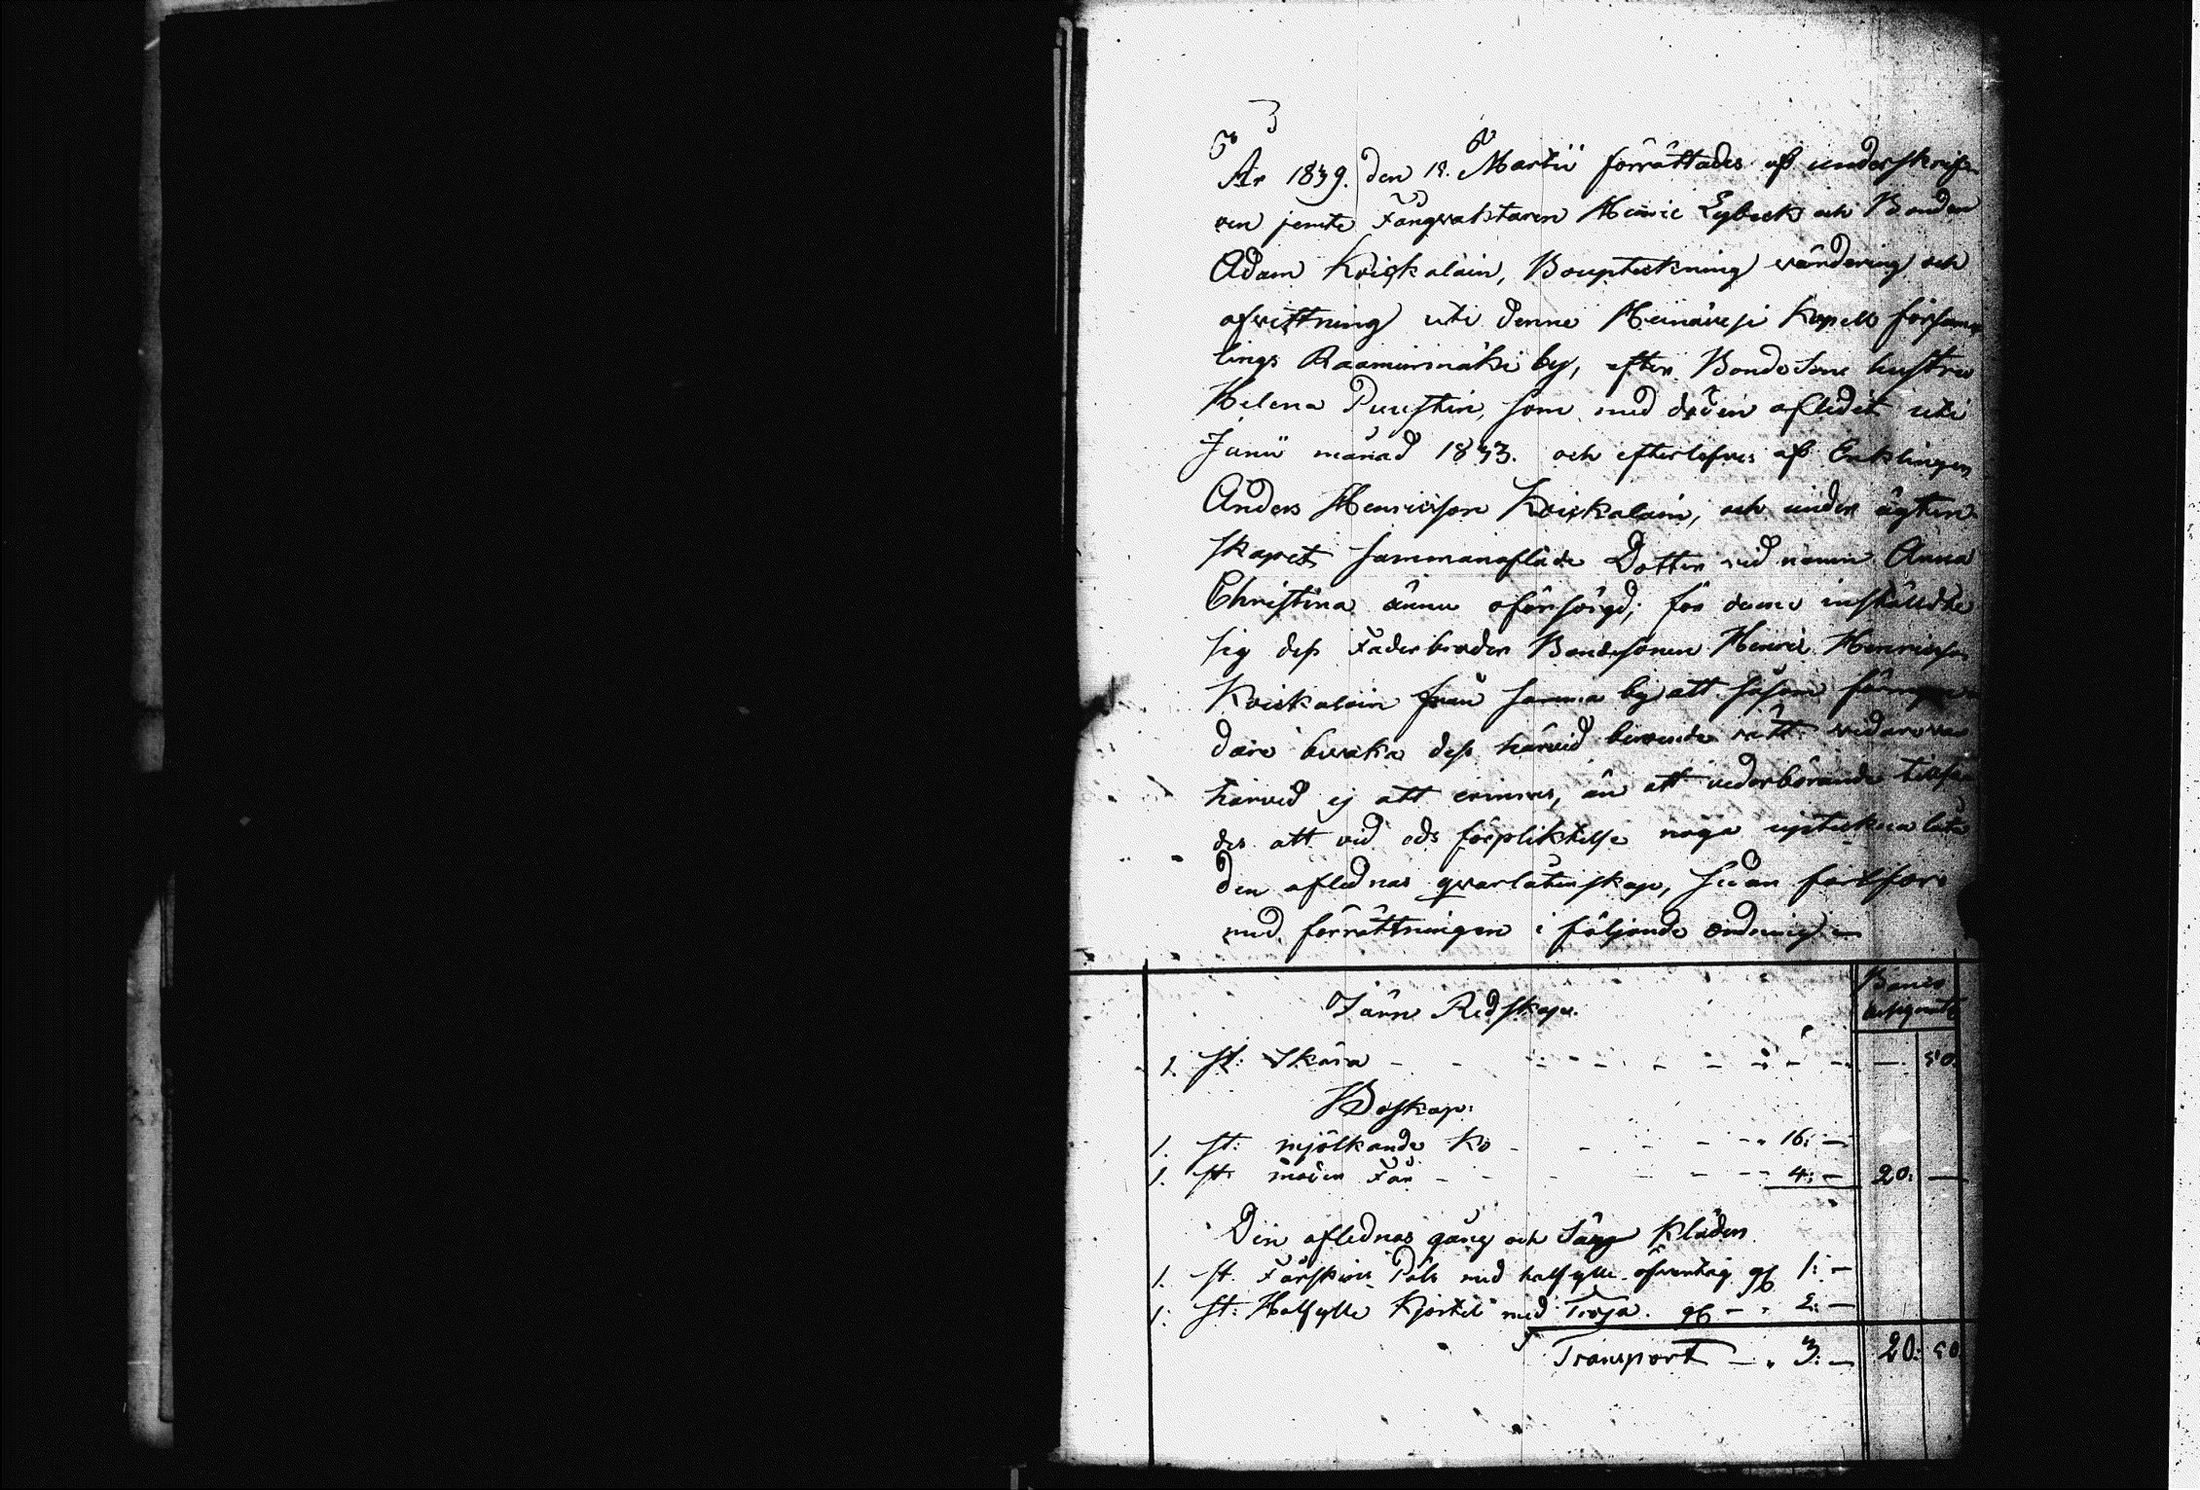 År 1839. den 18. Martii förrättades af underskrif-
en jemte Fångvaktaren Henric Lybeck och Bonden
Adam Kviskalain, Bouptekning värdering och
afvittring uti denne Heinävesi Kapells försam-
lings Raaminmäki by, efter Bondesone hustru
Helena Puustin, som med döden aflidit uti
Junii månad 1833. och efterlefves af Enklingen
Anders Henricsson Kviskalain, och under ägten-
skapet sammanaflade Dotter vid namn Anna
Christina ännu oförsörgd; för denne inställdte
sig dess Faderbroder Bondesonen Henric Henricsson
Kviskalain från samma by att såsom förmyn-
dare bevaka dess härvid beroende rätt
härvid ej att erinras, än att vederbörande tillsa-
des att vid eds förpliktelse noga uptekna låta
den aflednas qvarlåtenskap, sedan fortfors
med förrättningen i följande ordning
Banco
Assignats
Järn Redskap.
1. st: Skära - - - 50.
Boskap:
1. st: mjölkande Ko - - 16: -
1. st: moder Får - - 4: - 20: -
Den aflednas gång och Säng Kläder
1. st. Fårskins Päls med halfylle öfvertåg gf 1: -
1. st: Halfylle Kjortel med Tröja. gf - 2: -
Transport - 3: - 20: 50